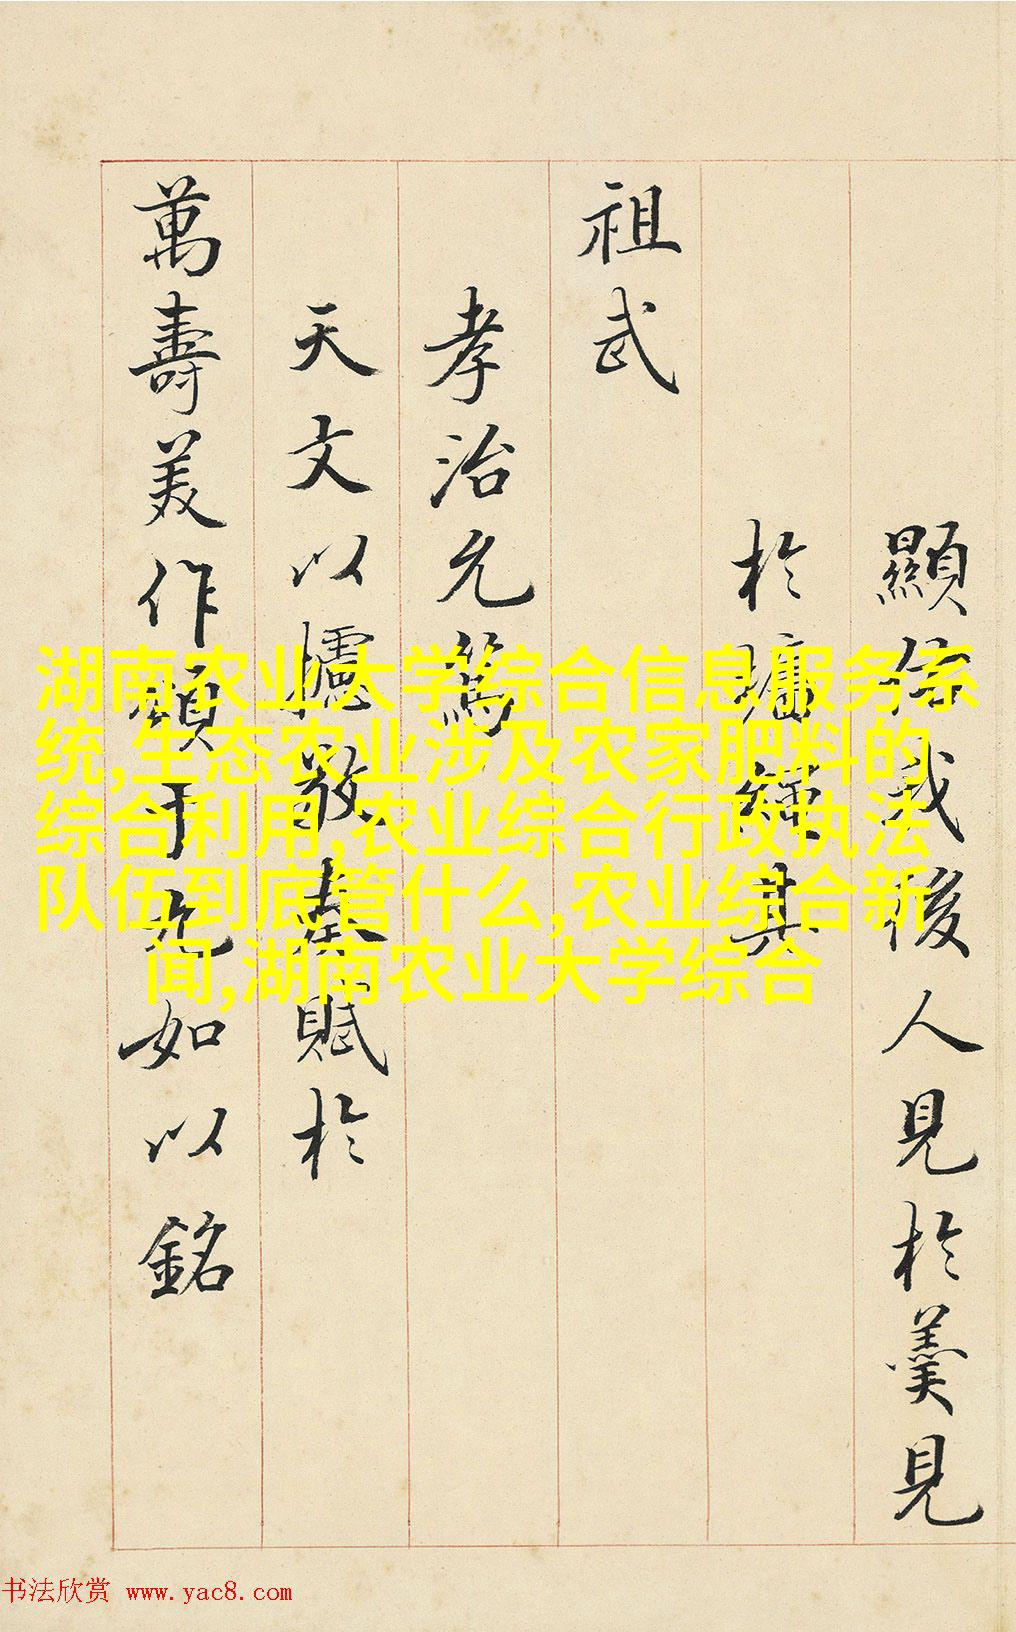 顯佑我後人見於羹見
於墻繩其
祖武
孝治允篤
天文以攄敬奏賦於
萬壽美作頌于九如以銘
湖南农业大学综合信息服务系
统,生态农业涉及农家肥料的
综合利用,农业综合行政执法
队伍到底管什么,农业综合新
闻,湖南农业大学综合
书法欣赏 www.yac8.com